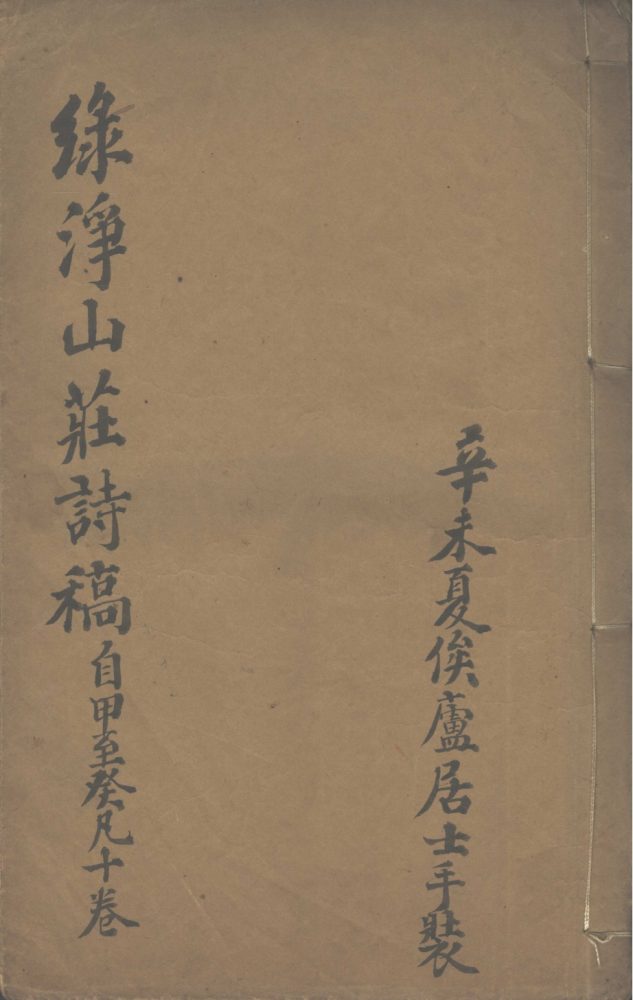 辛未夏俟廬居士手裝
綠淨山莊詩稿
自甲至癸凡十卷